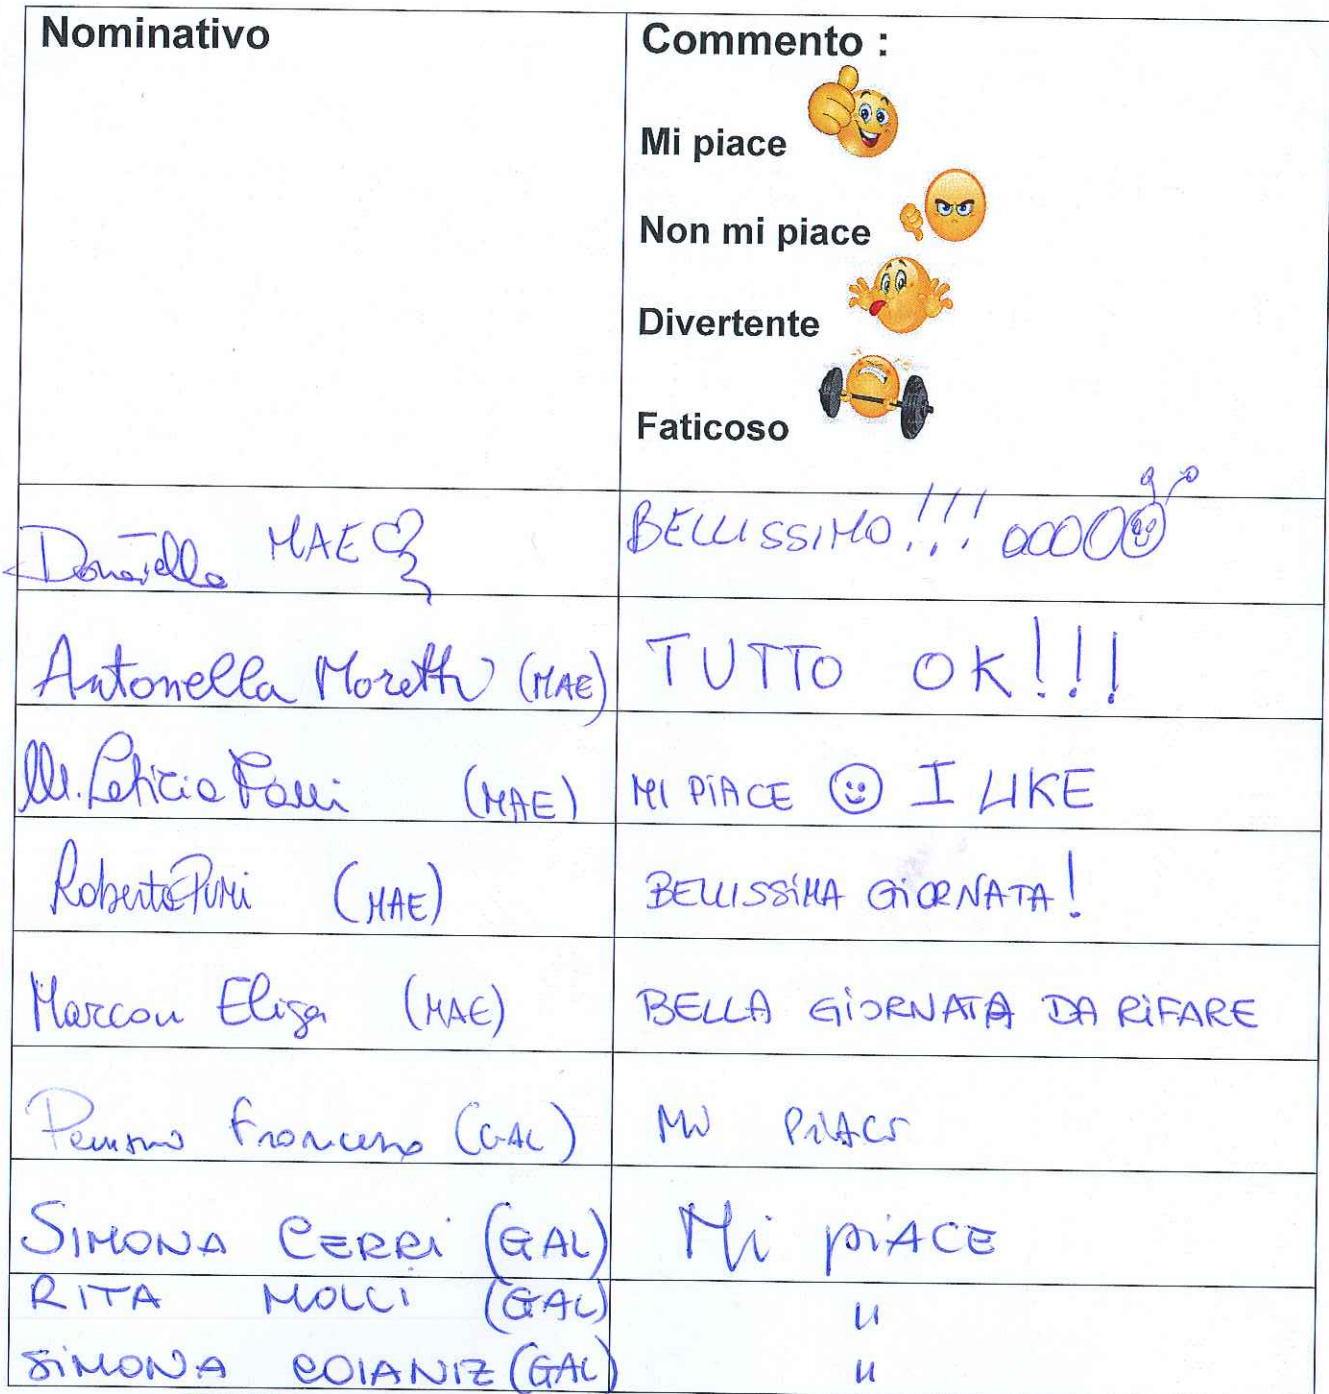 Nominativo Commento :
Mi piace
Non mi piace
Divertente
Faticoso
Donatella MAE BELLISSIMO!!!
Antonella Moretti (MAE) TUTTO OK!!!
M. Letizia (MAE) MI PIACE I LIKE
Roberto (MAE) BELLISSIMA GIORNATA!
Marcon Elisa (MAE) BELLA GIORNATA DA RIFARE
Francesco (GAL) Mi PiACE
SIMONA CERRi (GAL) Mi piACE
RITA MOLLI (GAL) "
SiMONA COIANIZ (GAL) "